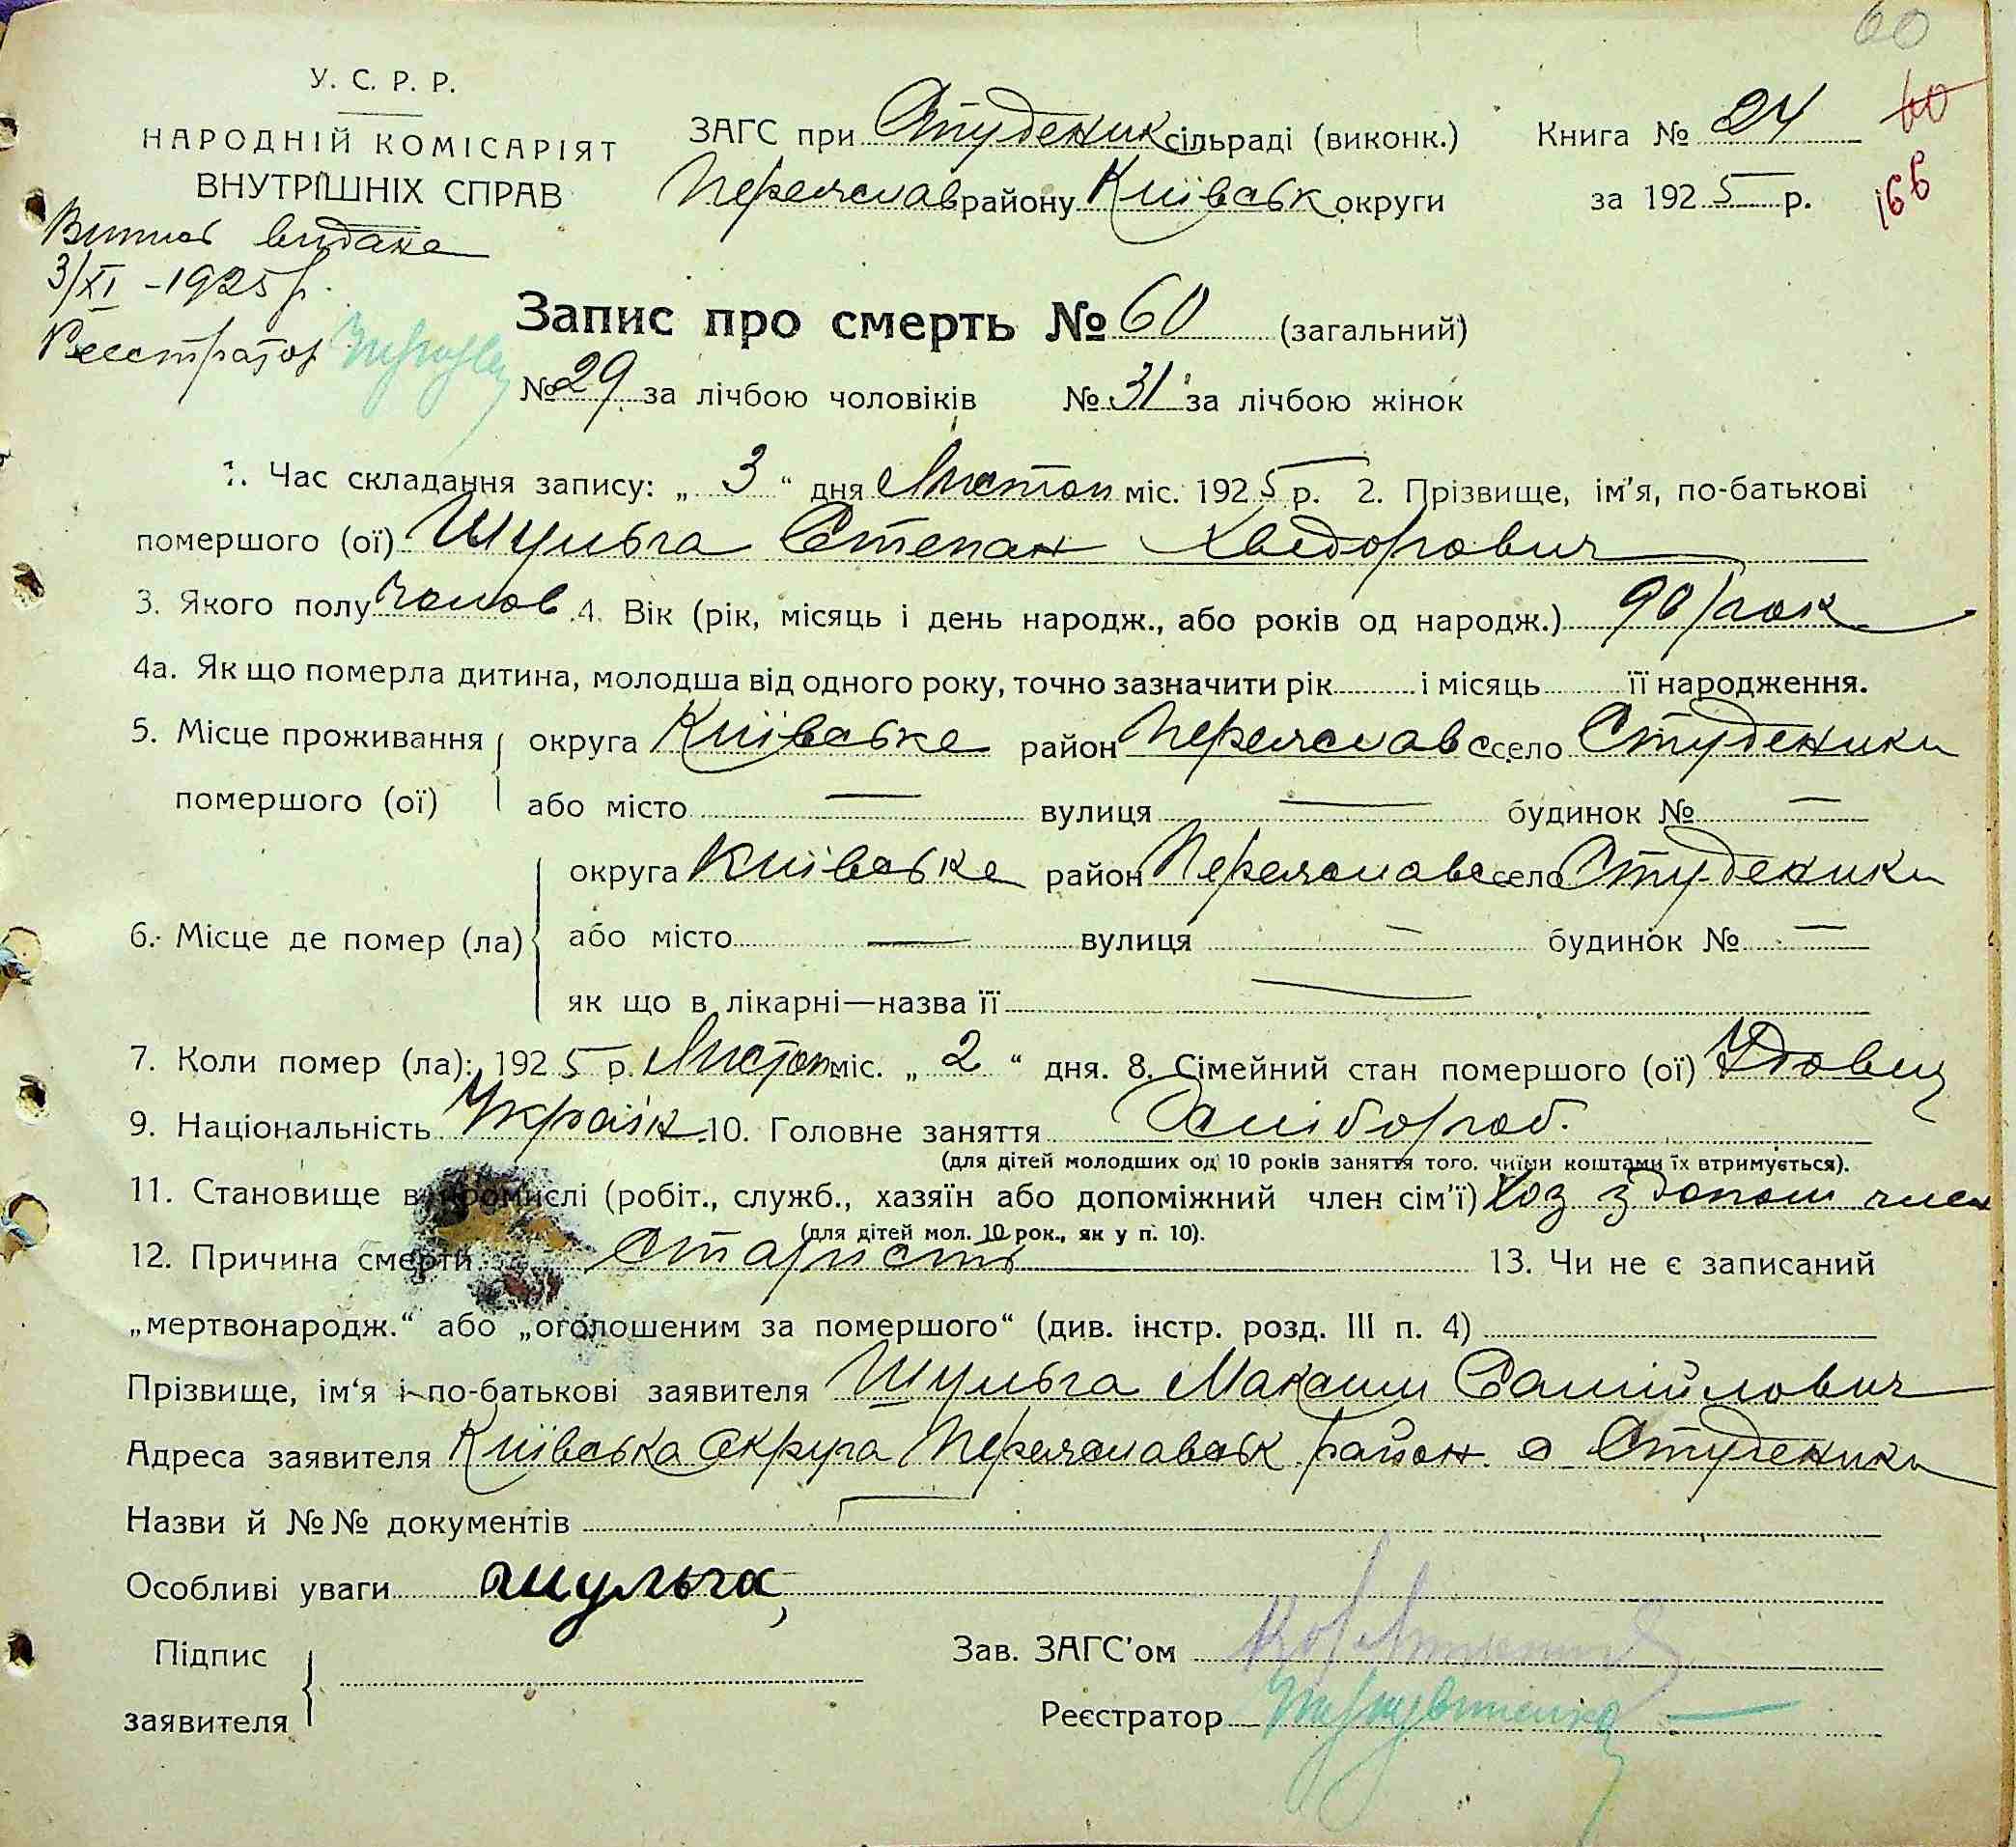 60
У. С. Р. Р.
НАРОДНІЙ КОМІСАРІЯТ
ВНУТРІШНІХ СПРАВ
ЗАГС при Студеник сільраді (виконк.) Книга № 24 60
Переяслав району Київськ округи за 1925 р. 166
видана
3/XI - 1925 р.
Реєстратор
Запис про смерть № 60 (загальний)
№ 29 за лічбою чоловіків № 31 за лічбою жінок
1. Час складання запису: „ 3 “ дня Листоп міс. 1925 р. 2. Прізвище, ім'я, по-батькові
помершого (ої) Шульга Степан Хведорович
3. Якого полу чолов 4. Вік (рік, місяць і день народж., або років од народж.) 90 рок
4а. Як що померла дитина, молодша від одного року, точно зазначити рік і місяць її народження.
5. Місце проживання помершого (ої) округа Київське район Переяславс село Студеники
або місто — вулиця — будинок № —
6. Місце де помер (ла) округа Київське район Переяславс село Студеники
або місто — вулиця — будинок № —
як що в лікарні—назва її —
7. Коли помер (ла): 1925 р. Листоп міс. „ 2 “ дня. 8. Сімейний стан помершого (ої) Удовец
9. Національність Україн. 10. Головне заняття Хлібороб.
(для дітей молодших од 10 років заняття того, чиїми коштами їх втримується).
11. Становище в промислі (робіт., служб., хазяїн або допоміжний член сім'ї) Хоз з допом член
(для дітей мол. 10 рок., як у п. 10).
12. Причина смерти Старисть 13. Чи не є записаний
„мертвонародж.“ або „оголошеним за помершого“ (див. інстр. розд. III п. 4)
Прізвище, ім'я і по-батькові заявителя Шульга Максим Самійлович
Адреса заявителя Київська Округа Переяславськ район с Студеники
Назви й №№ документів —
Особливі уваги шульга
Підпис заявителя
Зав. ЗАГС'ом
Реєстратор